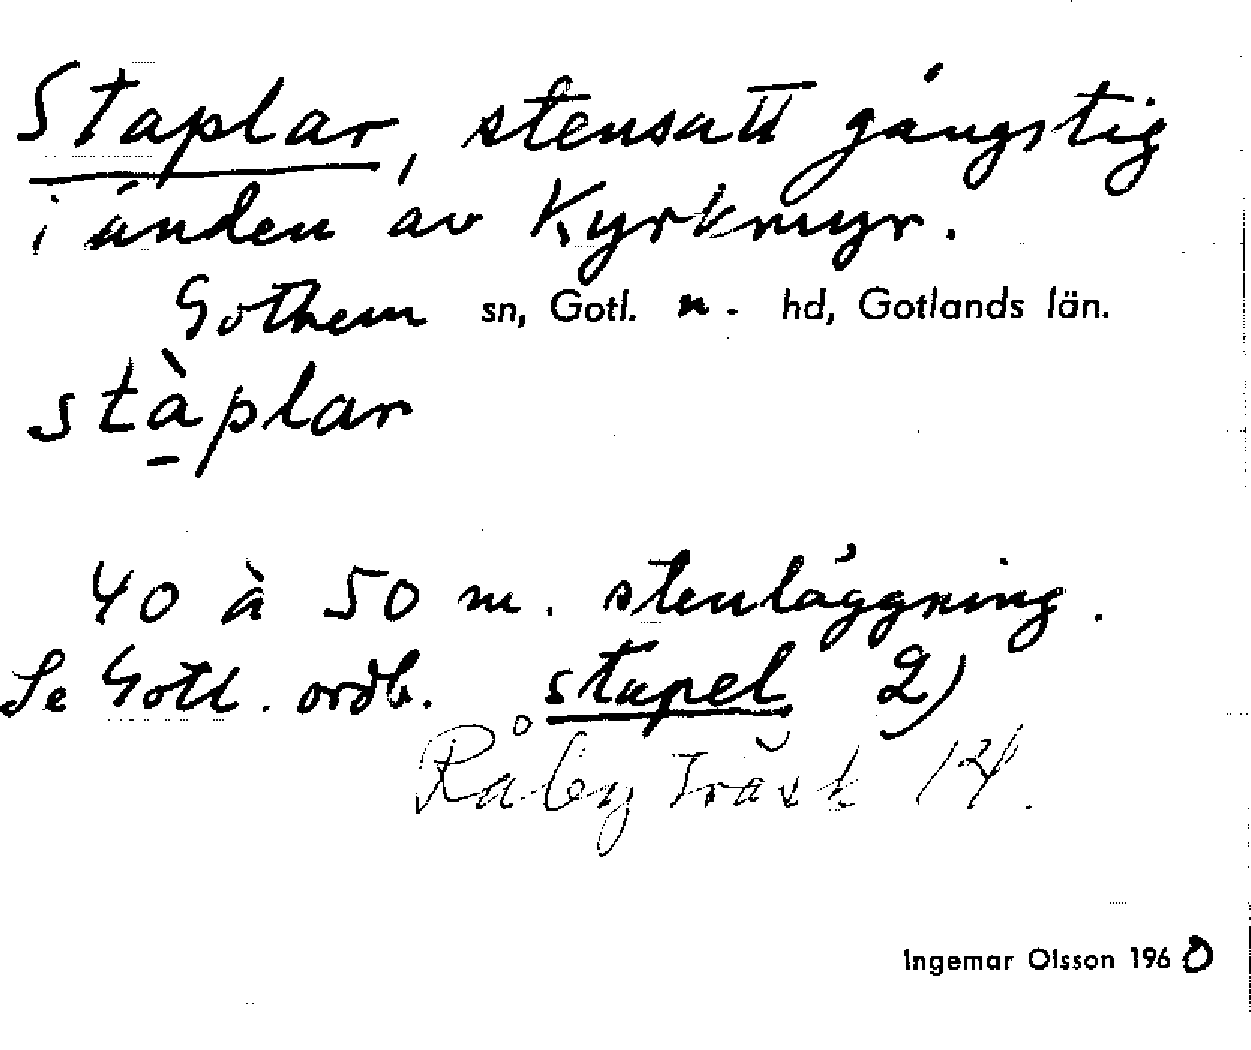 Staplar, stensatt gångstig
i änden av Kyrkmyr.
Gothem sn, Gotl. n. hd, Gotlands län.
stà̱plar
40 à 50 m. stenläggning.
Se Gotl. ordb. stapel 2)
Råby Träsk 14.
Ingemar Olsson 1960